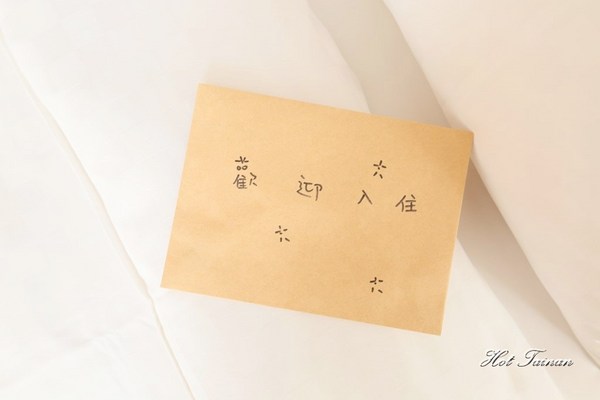 歡迎入住
Hot Tainan